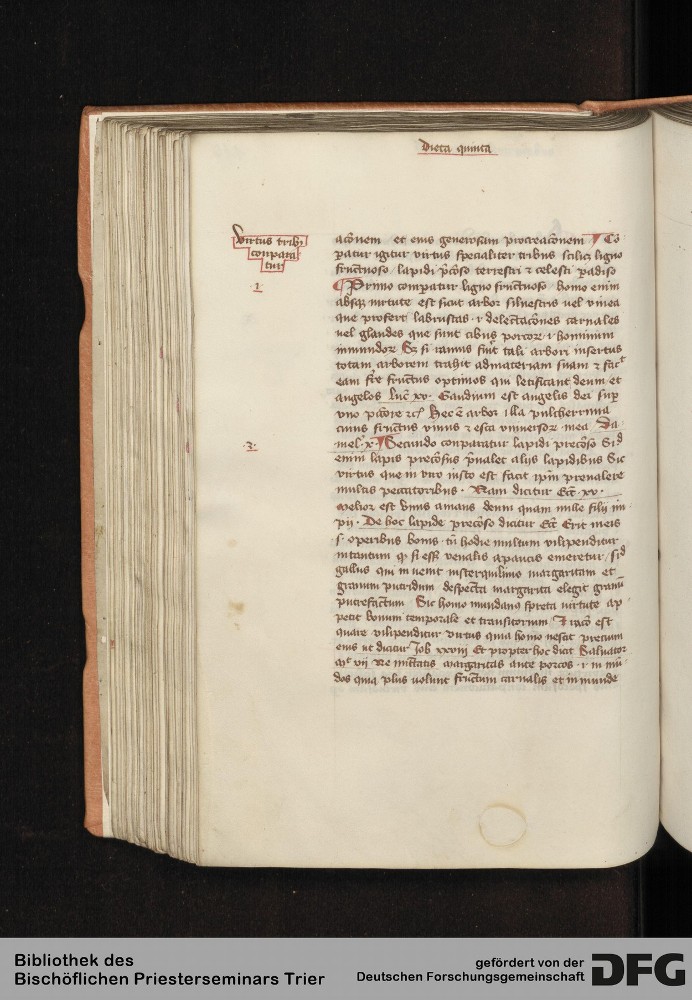 Dieta quinta
virtus tribus
conpara
tur
.1.
acōnem et eius generosam procreacōnem ¶ Cō
patur igitur virtus specialiter tribus scilicet ligno
fructuoso / lapidi p̄cōso terrestri ⁊ celesti padiso
¶ Primo comparatur ligno fructuoso / homo enim
absq₃ virtute est sicut arbor silvestris uel vinea
que profert labruscas .i. delectacōnes carnales
uel glandes que sunt cibus porcor̄ .i. hominum
inmundor̄ S₃ si ramus fu'it tali arbori insertus
totam arborem trahit ad materiam suam ⁊ facit
eam fr̄e fructus optimos qui letificant deum et
angelos Luc̄ xv. Gaudium est angelis dei sup
vno pctōre ⁊c̄ Hec ē arbor illa pulcherrima
cuius fructus nimius ⁊ esca vniuersor̄ in ea Da
.2.
niel .x. ¶ Secundo conparatur lapidi precōso Sic'
enim lapis preciosus p̄ualet alijs lapidibus Sic
virtus que in viro iusto est facit ipm̄ preualere
multis peccatoribus . Nam dicitur Ecc̄ .xv.
melior est vnus amans deum quam mille filij im
pij . De hoc lapide precōso dicitur Ecc̄ Erit meis
s. operibus bonis . tn̄ hodie multum vilipenditur
intantum q₎ si esset venalis a paucis emeretur / sic'
gallus qui inuenit in sterquilinio margaritam et
granum putridum despecta margarita elegit granū
putrefactum Sic homo mundanus spreta virtute ap
petit bonum temporale et transitorium Et iō est
quare vilipenditur virtus quia homo nescit precium
eius ut dicitur Job xxviij Et propter hoc dicit Saluator
Mt̄ vij Ne mittatis margaritas ante porcos .i. in mū
dos quia plus uolunt fructum carnalis et inmunde
Bibliothek des
Bischöflichen Priesterseminars Trier
gefördert von der
Deutschen Forschungsgemeinschaft
DFG